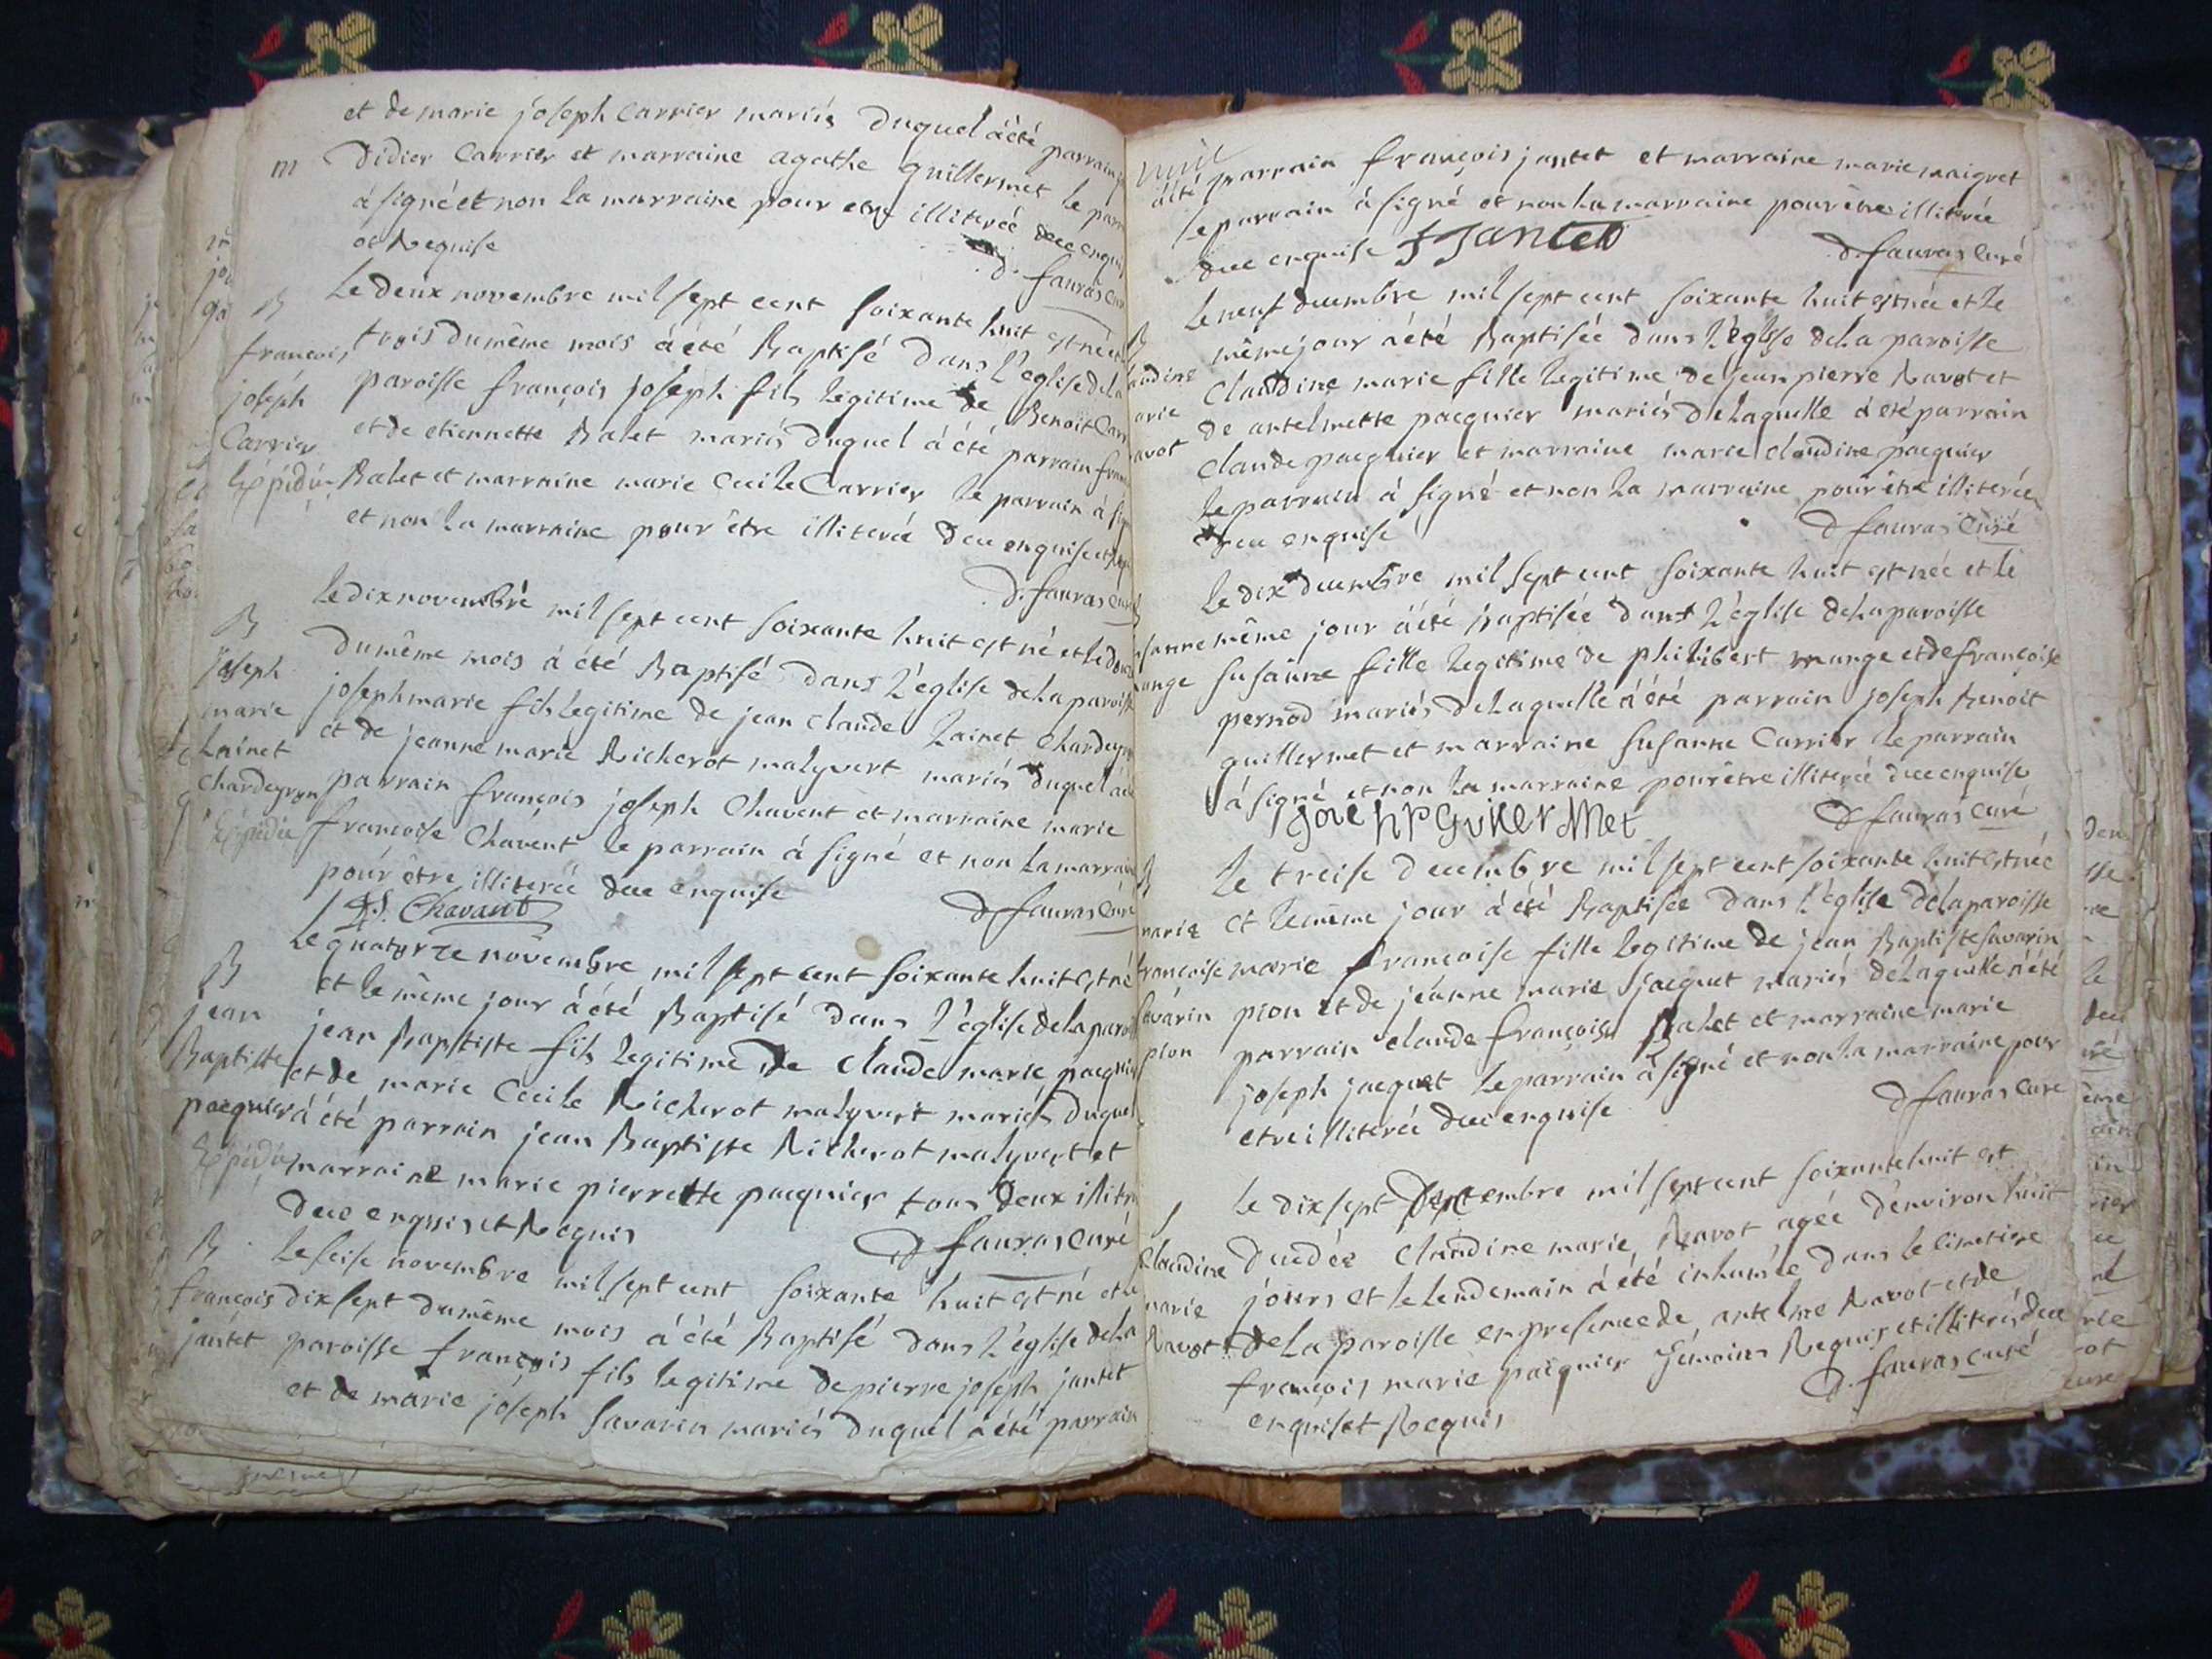 et de marie joseph Carrier mariés duquel à été parrain
m
Didier Carrier et marraine agathe guillermet le
à signé et non la marraine pour etre illiterée
et Requise
d. fauras
B
francois
joseph
Carrier
Expédié
Le deux novembre mil sept cent soixante huit est né et
trois du même mois à été Baptisé dans l'eglise de la
paroisse françois joseph fils legitime de Benoit
et de etiennette Balet mariés duquel à été parrain
Balet et marraine marie Cecile Carrier le parrain à
et non la marraine pour être illiterée deue enquise et
d. fauras
B
joseph
marie
Lainet
Chardeyron
Expédié
le dix novembre mil sept cent soixante huit est né et le
du même mois à été Baptisé dans l'eglise de la paroisse
joseph marie fils legitime de jean claude Lainet
et de jeanne marie Richerot malyvert mariés duquel
parrain françois joseph Chavent et marraine marie
francoise Chavent le parrain à signé et non la marraine
pour être illiterée deue enquise
Chavant
d fauras Curé
B
jean
Baptiste
pacquier
Expédié
Le quatorze novembre mil sept cent soixante huit est né
et le même jour à été Baptisé dans l'église de la
jean Baptiste fils legitime de Claude marie
et de marie Cecile Richerot malyvert mariés duquel
à été parrain jean Baptiste Richerot malyvert et
marraine marie pierrette pacquier tous deux
deue enquis et Requis
d fauras curé
B
françois
jantet
Le seise novembre mil sept cent soixante huit est né et le
dix sept du même mois à été Baptisé dans l'église de la
paroisse françois fils legitime de pierre joseph jantet
et de marie joseph Savarin mariés duquel à été parrain
à été parrain françois jantet et marraine marie maigret
le parrain à signé et non la marraine pour être illiterée
deue enquise
F Jantet
d. fauras Curé
Le neuf decembre mil sept cent soixante huit est née et le
même jour à été Baptisée dans l'église de la paroisse
Claudine marie fille legitime de jean pierre Ravot et
de antelmette pacquier mariés de laquelle à été parrain
Claude pacquier et marraine marie claudine pacquier
le parrain à signé et non la marraine pour être illiterée
deue enquise
d fauras Curé
Le dix decembre mil sept cent soixante huit est née et le
même jour à été Baptisée dans l'église de la paroisse
Susanne fille legitime de philibert mange et de françoise
pernod mariés de laquelle à été parrain joseph Benoit
guillermet et marraine Susanne Carrier le parrain
à signé et non la marraine pour être illiterée deue enquise
d fauras curé
B
marie
francoise
Savarin
pion
Le treise decembre mil sept cent soixante huit est née
et le même jour à été Baptisée dans l'église de la paroisse
marie francoise fille legitime de jean Baptiste Savarin
pion et de jeanne marie jacquet mariés de laquelle à été
parrain claude françois Balet et marraine marie
joseph jacquet le parrain à signé et non la marraine pour
etre illiterée deue enquise
d fauras Curé
Claudine
marie
Ravot
Le dix sept mil sept cent soixante huit est
decedée Claudine marie Ravot agée d'environ huit
jours et le lendemain à été inhumée dans le cimetiere
de la paroisse en presence de antelme Ravot et de
françois marie pacquier témoins Requis et illiterés deue
enquis et Requis
d. fauras curé